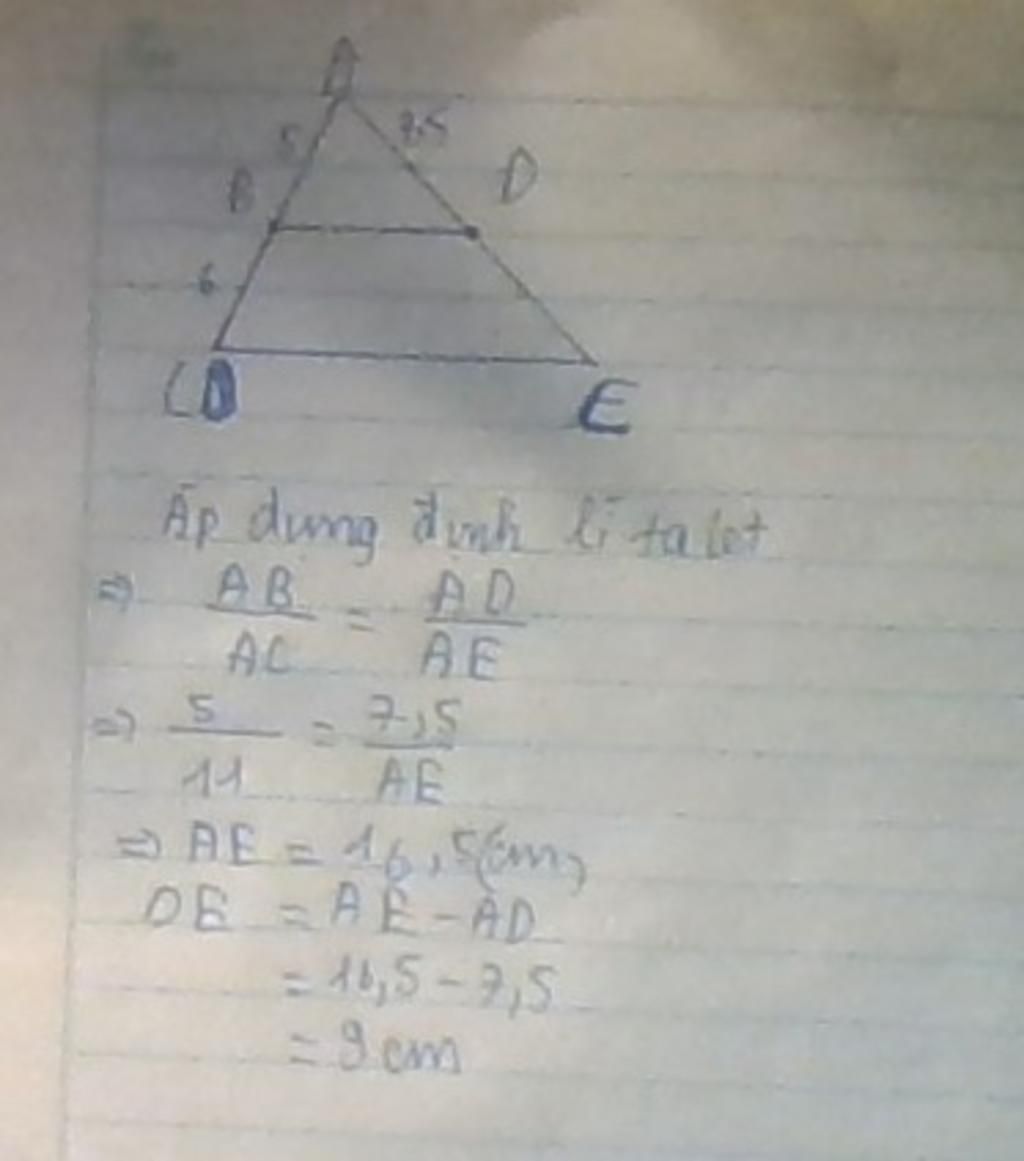 A
5
7,5
B
D
6
C
E
Áp dụng định lí ta let
=> AB/AC = AD/AE
=> 5/11 = 7,5/AE
=> AE = 16,5(cm)
DE = AE - AD
= 16,5 - 7,5
= 9 cm